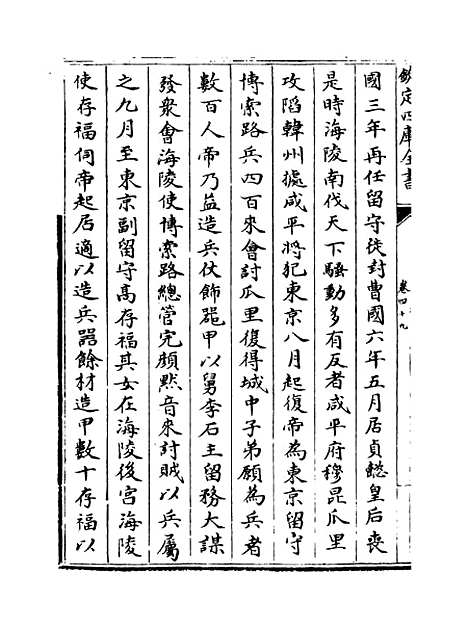 欽定四庫全書
卷四十九
國三年再任留守徙封曹國六年五月居貞懿皇后喪
是時海陵南伐天下騷動多有反者咸平府穆昆瓜里
攻陷韓州據咸平將犯東京八月起復帝為東京留守
博索路兵四百來會討瓜里復得城中子弟願為兵者
數百人帝乃益造兵仗飾鎧甲以舅李石主留務大謀
發衆會海陵使博索路總管完顔黙音來討賊以兵屬
之九月至東京副留守髙存福其女在海陵後宮海陵
使存福伺帝起居適以造兵器餘材造甲數十存福以